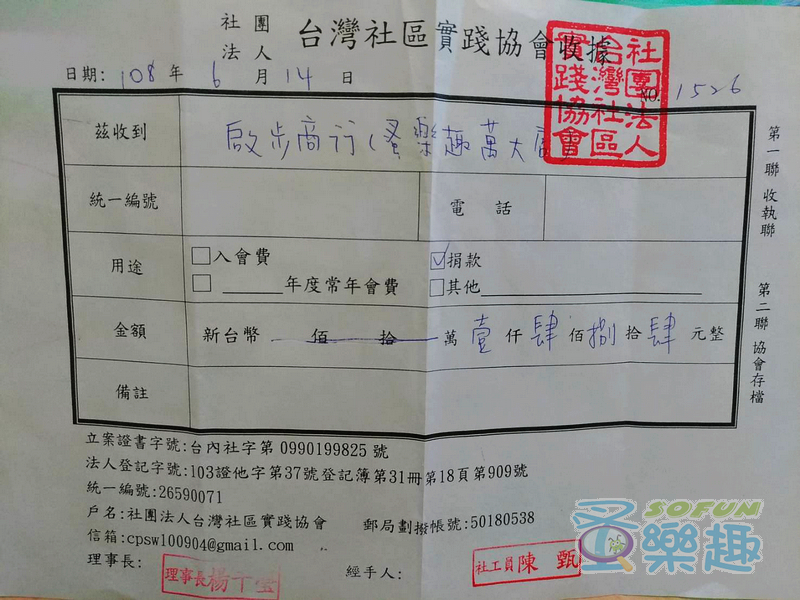 社團法人 台灣社區實踐協會收據
日期: 108 年 6 月 14 日
NO. 1526
社團法人台灣社區實踐協會
茲收到 啟步商行(蚤樂趣萬大店
統一編號 電話
用途 □入會費 ☑捐款
□______年度常年會費 □其他
金額 新台幣 佰 拾 萬 壹 仟 肆 佰 捌 拾 肆 元整
備註
第一聯 收執聯
第二聯 協會存檔
立案證書字號:台內社字第 0990199825 號
法人登記字號:103證他字第37號登記簿第31冊第18頁第909號
統一編號:26590071
戶名:社團法人台灣社區實踐協會 郵局劃撥帳號:50180538
信箱:cpsw100904@gmail.com
理事長: 理事長 楊 經手人: 社工員 陳甄
SOFUN
蚤樂趣